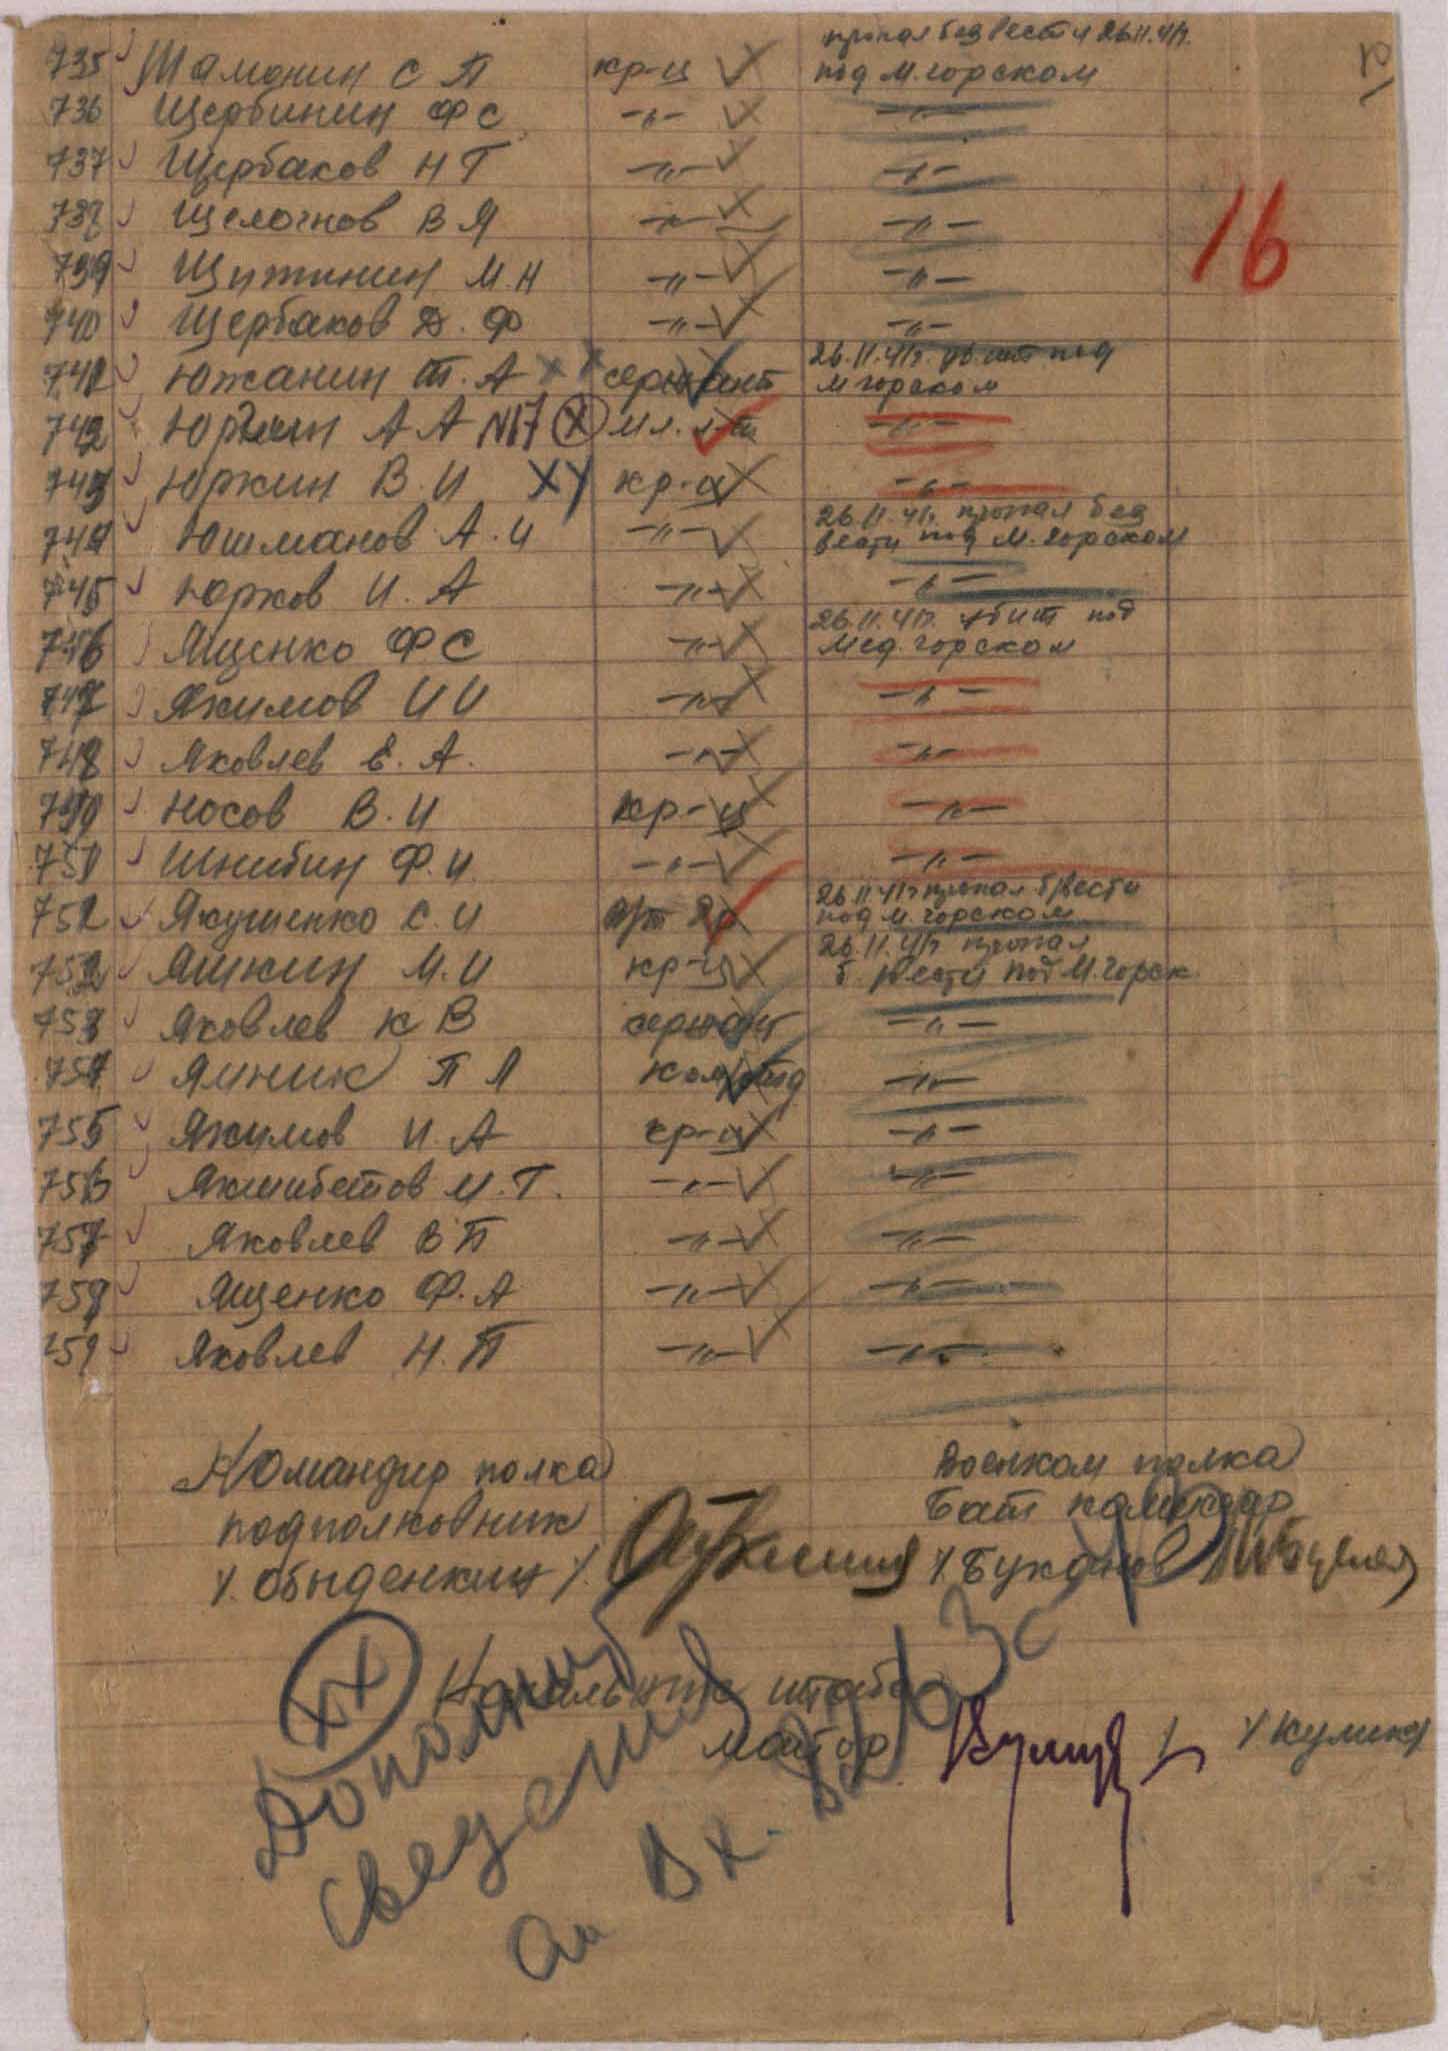 пропал без вести 26.11.41г.
735 Шамонин С П кр-ц под М.горском
736 Щербинин Ф С -"- -"-
737 Щербаков Н Т -"- -"-
738 Щелочнов В Я -"- -"-
739 Щитинин М.Н -"- -"-
740 Щербаков Д.Ф -"- -"-
26.11.41г. убит под
741 Южанин Т.А сержант М горском
742 А А N17 мл. л-т -"-
743 Юркин В.И ХУ кр-ц -"-
26.11.41г. пропал без
744 Юшманов А.И -"- вести под М.горском
745 Юрков И.А -"- -"-
26.11.41г. убит под
746 Ященко Ф С -"- Мед.горском
747 Якимов И И -"- -"-
748 Яковлев Е.А. -"- -"-
750 Носов В.И кр-ц -"-
751 Шнибин Ф.И -"- -"-
26.11.41г пропал б/вести
752 Якушенко С.И под М.горском
26.11.41г пропал
752 Яшкин М.И кр-ц б.вести под М.горск.
753 Яковлев К В сержант -"-
754 Ялник П Л -"-
755 Якимов И.А кр-ц -"-
756 Якшибетов М.Т. -"- -"-
757 Яковлев В П -"- -"-
758 Ященко Ф.А -"- -"-
759 Яковлев Н.П -"- -"-
16
Командир полка Военком полка
подполковник Бат комиссар
/.Обыденкин/. /.Буханов
XX
Начальник штаба
майор /Кулик/
Дополнит
сведения
Вх.